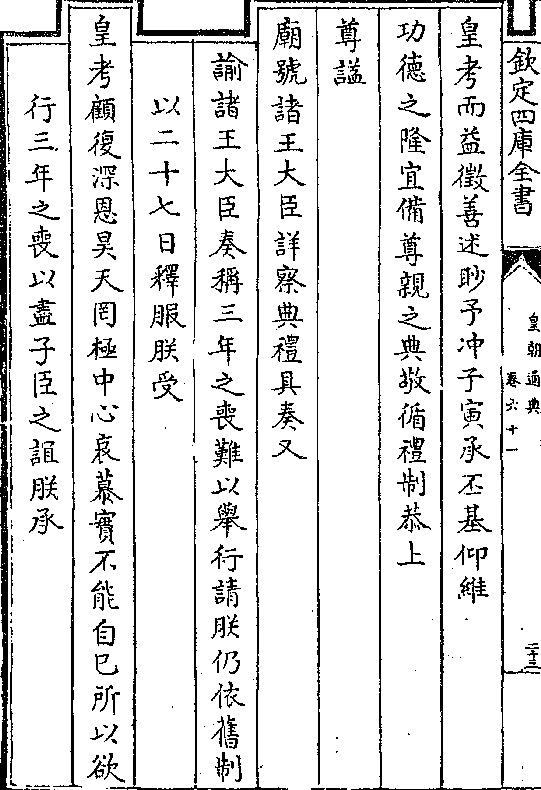 欽定四庫全書
皇朝通典
卷六十一
二十三
皇考而益徵善述眇予冲子寅承丕基仰維
功德之隆宜備尊親之典敬循禮制恭上
尊諡
廟號諸王大臣詳察典禮具奏又
諭諸王大臣奏稱三年之喪難以舉行請朕仍依舊制
以二十七日釋服朕受
皇考顧復深恩昊天罔極中心哀慕實不能自已所以欲
行三年之喪以盡子臣之誼朕承